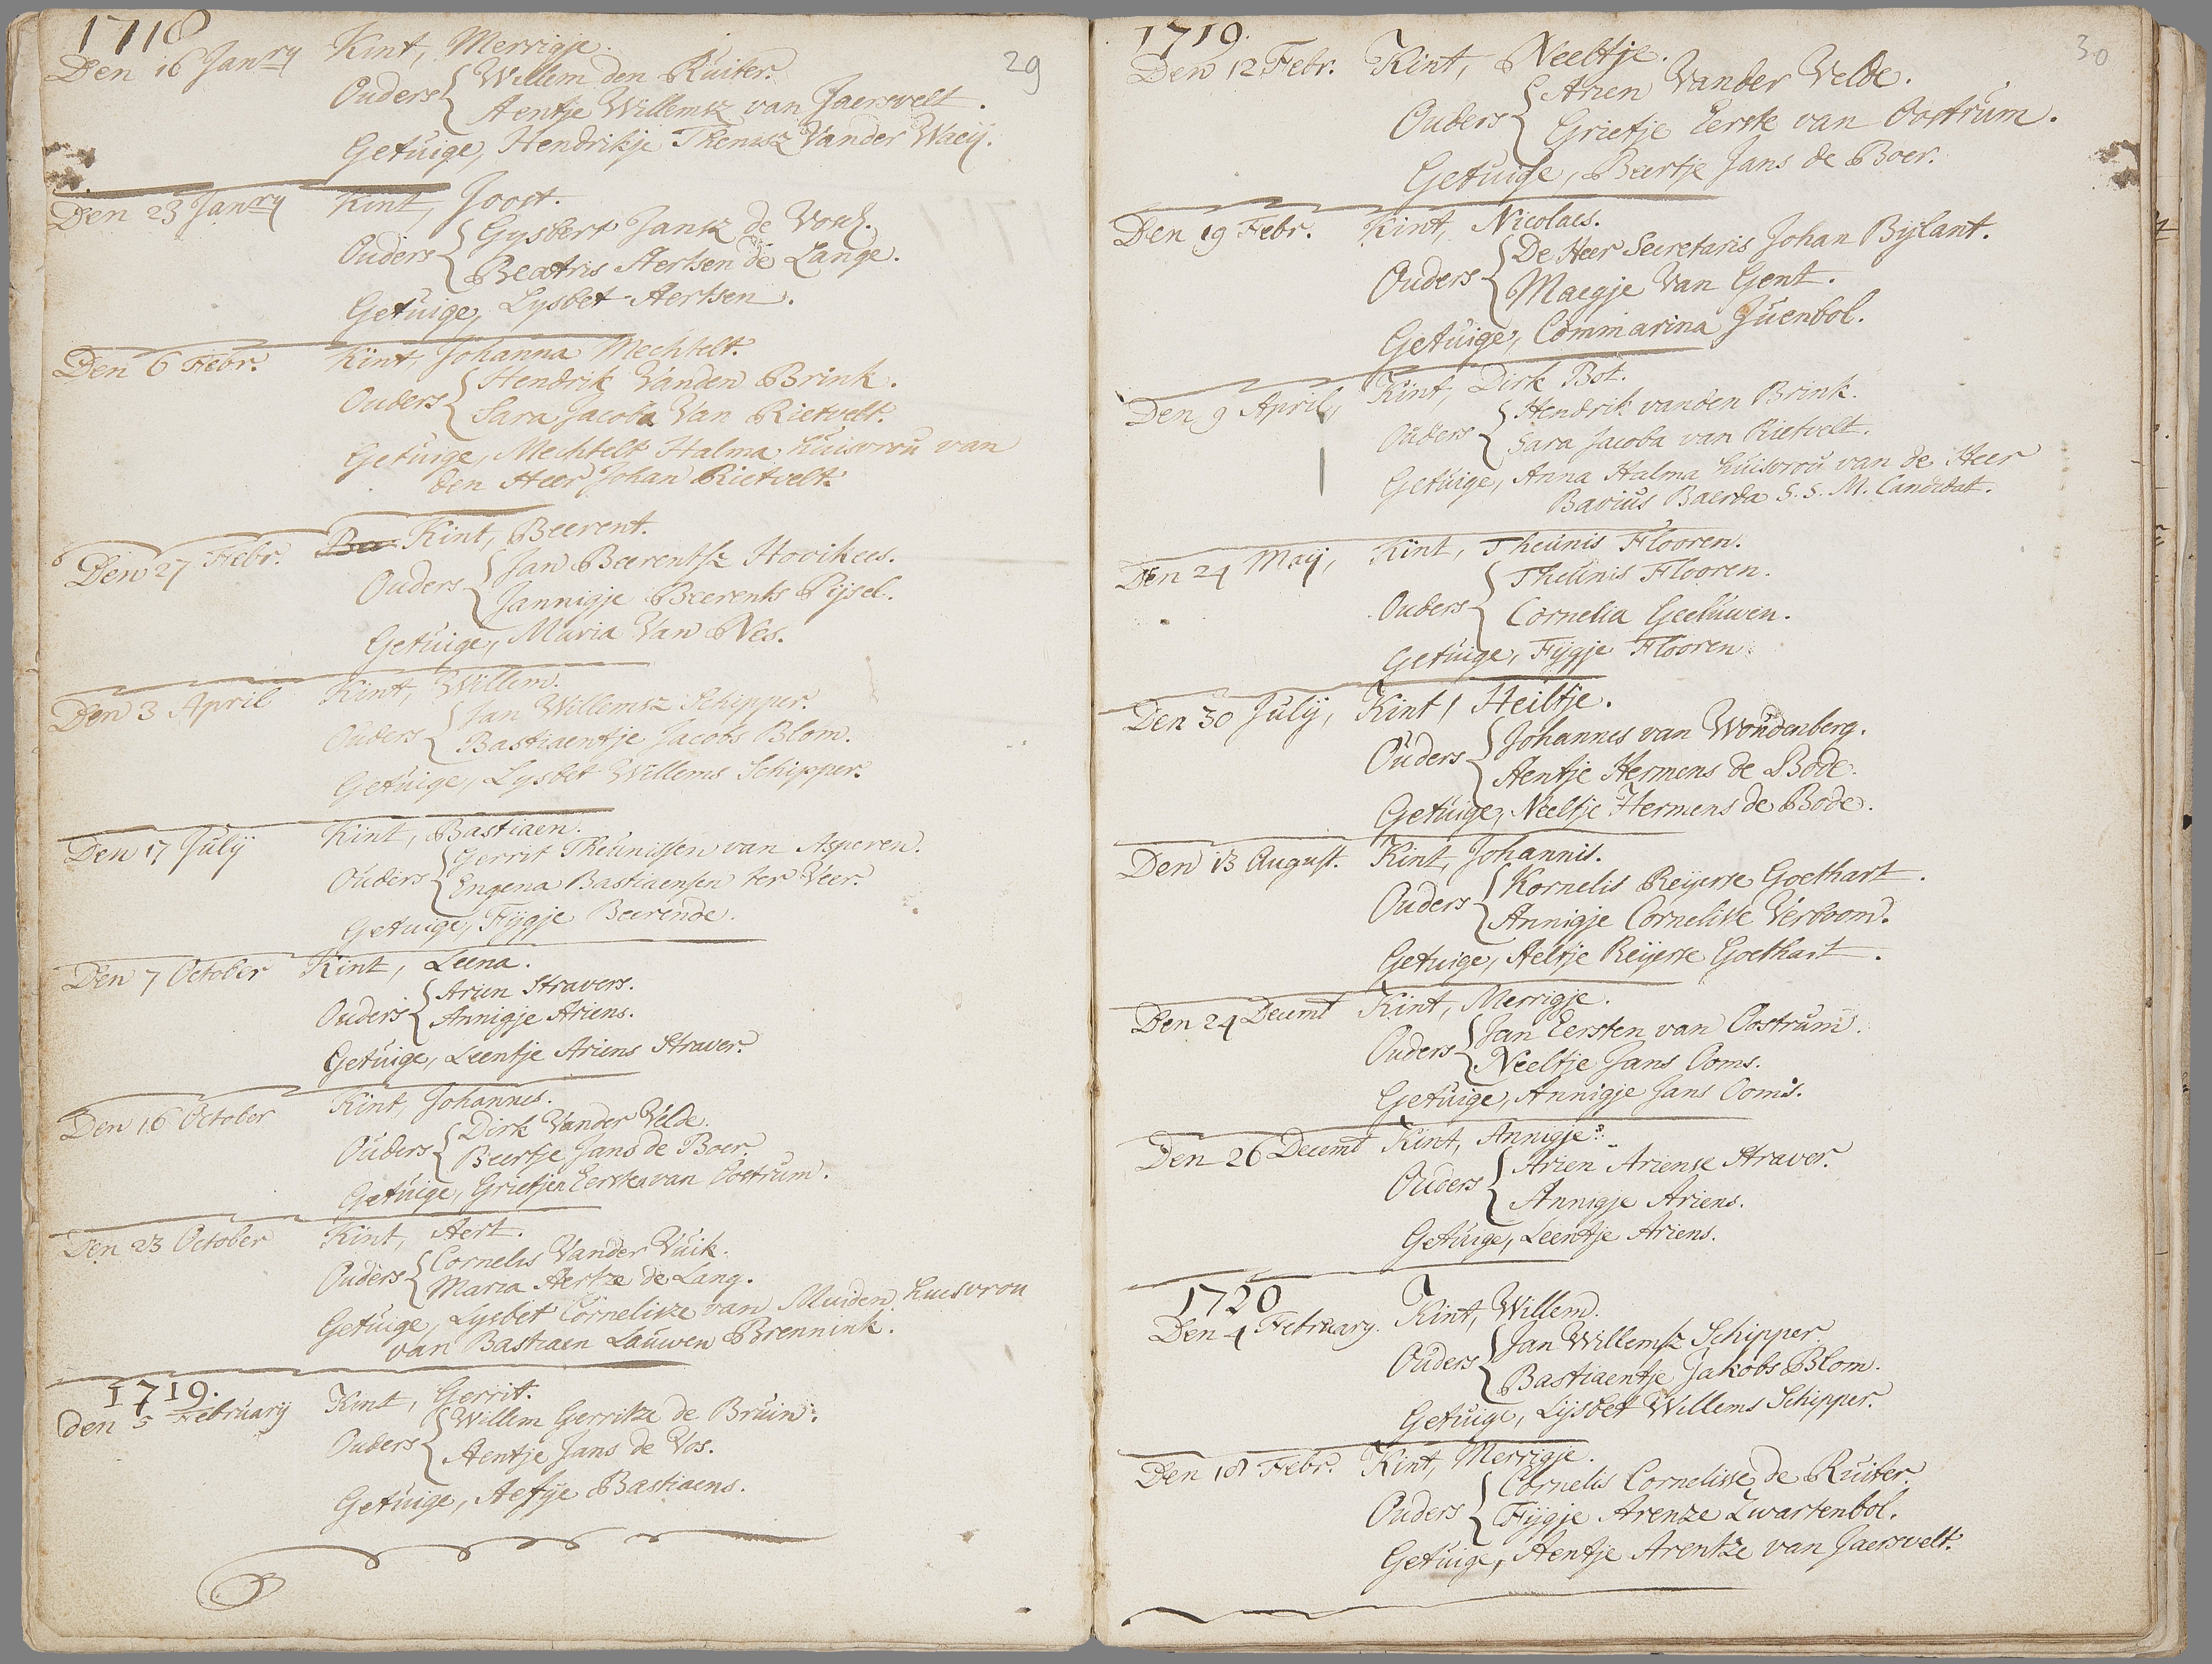 1718
29
Den 16 Janry Kint, Merrigje.
Ouders Willem den Ruiter.
Aentje Willemsz van Jaersvelt.
Getuige, Hendrikje Theunisz Vander Waeij.
Den 23 Janry Kint, Joost.
Ouders Gysbert Jansz de Vos.
Beatris Aertsen de Lange.
Getuige, Lysbet Aertsen.
Den 6 Febr. Kint, Johanna Mechtelt.
Ouders Hendrik Vanden Brink.
Sara Jacoba Van Rietvelt.
Getuige, Mechtelt Halma huisvrou van
den Heer Johan Rietvelt.
Den 27 Febr. Kint, Beerent.
Ouders Jan Beerentsz Hovikees.
Jannigje Beerents Pijsel.
Getuige, Maria Van Nes.
Den 3 April Kint, Willem.
Ouders Jan Willemsz Schipper.
Bastiaentje Jacobs Blom.
Getuige, Lysbet Willems Schipper.
Den 17 Julij Kint, Bastiaen.
Ouders Gerrit Theunissen van Asperen.
Engena Bastiaensen ter Veer.
Getuige, Fijgje Beerende.
Den 7 October Kint, Leena.
Ouders Arien Stravers.
Annigje Ariens.
Getuige, Leentje Ariens Straver.
Den 16 October Kint, Johannes.
Ouders Dirk Vander Velde.
Beertje Jans de Boer.
Getuige, Grietje Eerste van Oostrum.
Den 23 October Kint, Aert.
Ouders Cornelis Vander Vuik.
Maria Aertze de Lang.
Getuige, Lysbet Cornelisze van Muiden huisvrou
van Bastiaen Lauwen Brennink.
1719.
den 5 February Kint, Gerrit.
Ouders Willem Gerritze de Bruin.
Aentje Jans de Vos.
Getuige, Aefje Bastiaens.
1719.
30
Den 12 Febr. Kint, Neeltje.
Ouders Arien Vander Velde.
Grietje Eerste van Oostrum.
Getuige, Beertje Jans de Boer.
Den 19 Febr. Kint, Nicolaes.
Ouders De Heer Secretaris Johan Bijlant.
Maegje Van Gent.
Getuige, Commarina Juenbol.
Den 9 April, Kint, Dirk Bot.
Ouders Hendrik vanden Brink.
Sara Jacoba van Rietvelt.
Getuige, Anna Halma huisvrou van de Heer
Bavius Baerda S. S. M. Candidat.
Den 24 Maij, Kint, Theunis Flooren.
Ouders Theunis Flooren.
Cornelia Geeluwen.
Getuige, Fijgje Flooren.
Den 30 Julij, Kint, Heiltje.
Ouders Johannes van Woudenberg.
Aentje Hermens de Bode.
Getuige, Neeltje Hermens de Bode.
Den 13 August. Kint, Johannis.
Ouders Kornelis Reijerse Goethart.
Annigje Cornelisse Verboom.
Getuige, Aeltje Reijerse Goethart.
Den 24 Decemt Kint, Merrigje.
Ouders Jan Eersten van Oostrum.
Neeltje Jans Ooms.
Getuige, Annigje Jans Ooms.
Den 26 Decemt Kint, Annigje.
Ouders Arien Ariense Straver.
Annigje Ariens.
Getuige, Leentje Ariens.
1720
Den 4 February. Kint, Willem.
Ouders Jan Willemsz Schipper.
Bastiaentje Jakobs Blom.
Getuige, Lijsbet Willems Schipper.
Den 18 Febr. Kint, Merrigje.
Ouders Cornelis Cornelisse de Ruiter.
Fijgje Arenze Zwartenbol.
Getuige, Aentje Arentze van Jaersvelt.